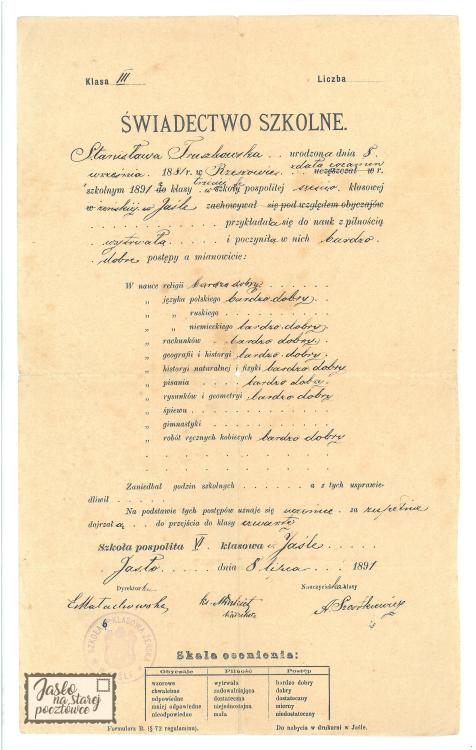 Klasa III Liczba
ŚWIADECTWO SZKOLNE.
Stanisława urodzona dnia 8.
września 1881 r. w Rzeszowie zdała egzamin uczęszczał w r.
szkolnym 1891 do klasy trzeciej w szkoły pospolitej sześcio klasowej
w Jaśle zachowywał się pod względem obyczajów
przykładała się do nauk z pilnością
wytrwałą i poczyniła w nich bardzo
dobre postępy a mianowicie:
W nauce religii bardzo dobry
„ języka polskiego bardzo dobry
„ „ ruskiego
„ „ niemieckiego bardzo dobry
„ rachunków bardzo dobry
„ geografii i historyi bardzo dobry
„ historyi naturalnej i fizyki bardzo dobry
„ pisania bardzo dobry
„ rysunków i geometryi bardzo dobry
„ śpiewu
„ gimnastyki
„ robót ręcznych kobiecych bardzo dobry
Zaniedbał godzin szkolnych a z tych usprawie-
dliwił
Na podstawie tych postępów uznaje się uczennicę za zupełnie
dojrzałą do przejścia do klasy czwartej
Szkoła pospolita VI klasowa w Jaśle
Jasło dnia 8 lipca 1891
Dyrektorka Nauczycielka klasy
6
Skala ocenienia:
Obyczaje Pilność Postęp
wzorowe wytrwała bardzo dobry
chwalebne zadowalniająca dobry
odpowiednie dostateczna dostateczny
mniej odpowiednie niejednostajna mierny
nieodpowiednie mała niedostateczny
Formularz B. (§ 72 regulaminu). Do nabycia w drukarni w Jaśle.
Jasło
na starej
pocztówce